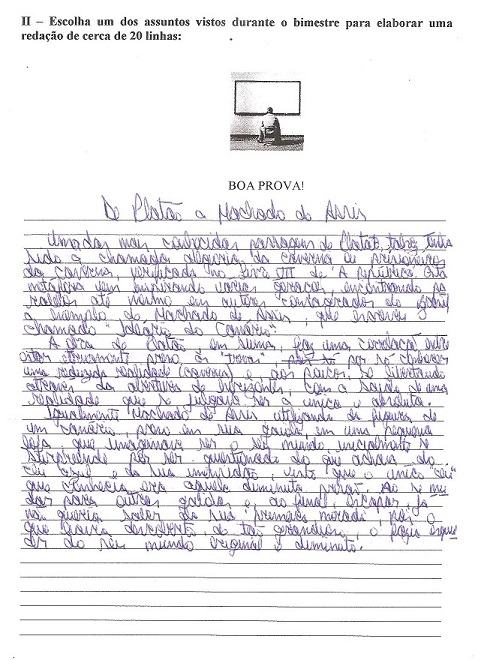 II – Escolha um dos assuntos vistos durante o bimestre para elaborar uma
redação de cerca de 20 linhas:
BOA PROVA!
De Platão a Machado de Assis
Uma das mais conhecidas passagens de Platão talvez tenha
sido a chamada alegoria da caverna ou prisioneiros
da caverna, verificada no livro VII de "A República". Esta
metáfora vem inspirando várias gerações, encontrando pa
ralelos até mesmo em autores consagrados do Brasil
a exemplo de Machado de Assis, que escreveu
chamado "Ideias do Canário".
A obra de Platão em suma, faz uma correlação entre
estar eternamente preso às "trevas", por só conhecer
uma reduzida realidade (caverna) e aos poucos, se libertando
através da abertura de horizontes, com a saída de uma
realidade que se julgava ser a única e absoluta.
Igualmente Machado de Assis utilizando da figura de
um canário, preso em sua gaiola, em uma pequena
loja, que imaginava ser o seu mundo inicialmente se
surpreende por ser questionado do que achava do
céu azul e da sua imensidão visto que o único "céu"
que conhecia era aquela diminuta prisão. Ao se mu
dar para outras gaiolas e, ao final, escapar, já
não queria saber da sua "primeira morada", pois o
que havia descoberto, de tão grandioso, o fazia esque
cer do seu mundo original e diminuto.